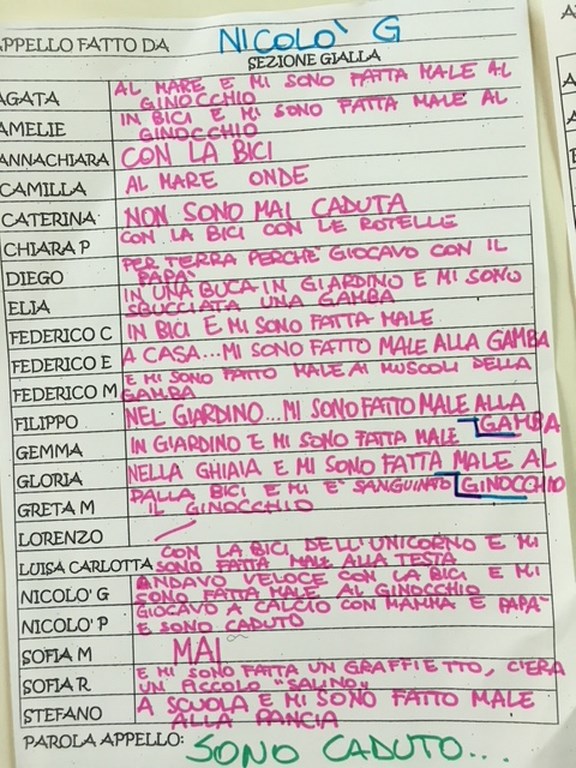 APPELLO FATTO DA NICOLO' G
SEZIONE GIALLA
AGATA AL MARE E MI SONO FATTA MALE AL
GINOCCHIO
AMELIE IN BICI E MI SONO FATTA MALE AL
GINOCCHIO
ANNACHIARA CON LA BICI
CAMILLA AL MARE ONDE
CATERINA NON SONO MAI CADUTA
CHIARA P CON LA BICI CON LE ROTELLE
DIEGO PER TERRA PERCHE' GIOCAVO CON IL
PAPA'
ELIA IN UNA BUCA IN GIARDINO E MI SONO
SBUCCIATA UNA GAMBA
FEDERICO C IN BICI E MI SONO FATTA MALE
FEDERICO E A CASA...MI SONO FATTO MALE ALLA GAMBA
FEDERICO M E MI SONO FATTO MALE AI MUSCOLI DELLA
GAMBA
FILIPPO NEL GIARDINO...MI SONO FATTO MALE ALLA
GAMBA
GEMMA IN GIARDINO E MI SONO FATTA MALE
GLORIA NELLA GHIAIA E MI SONO FATTA MALE AL
GINOCCHIO
GRETA M DALLA BICI E MI E' SANGUINATO
IL GINOCCHIO
LORENZO
LUISA CARLOTTA CON LA BICI DELL'UNICORNO E MI
SONO FATTA MALE ALLA TESTA
NICOLO' G ANDAVO VELOCE CON LA BICI E MI
SONO FATTA MALE AL GINOCCHIO
NICOLO' P GIOCAVO A CALCIO CON MAMMA E PAPA'
E SONO CADUTO
SOFIA M MAI
SOFIA R E MI SONO FATTA UN GRAFFIETTO, C'ERA
UN PICCOLO "SALINO"
STEFANO A SCUOLA E MI SONO FATTO MALE
ALLA PANCIA
PAROLA APPELLO: SONO CADUTO...